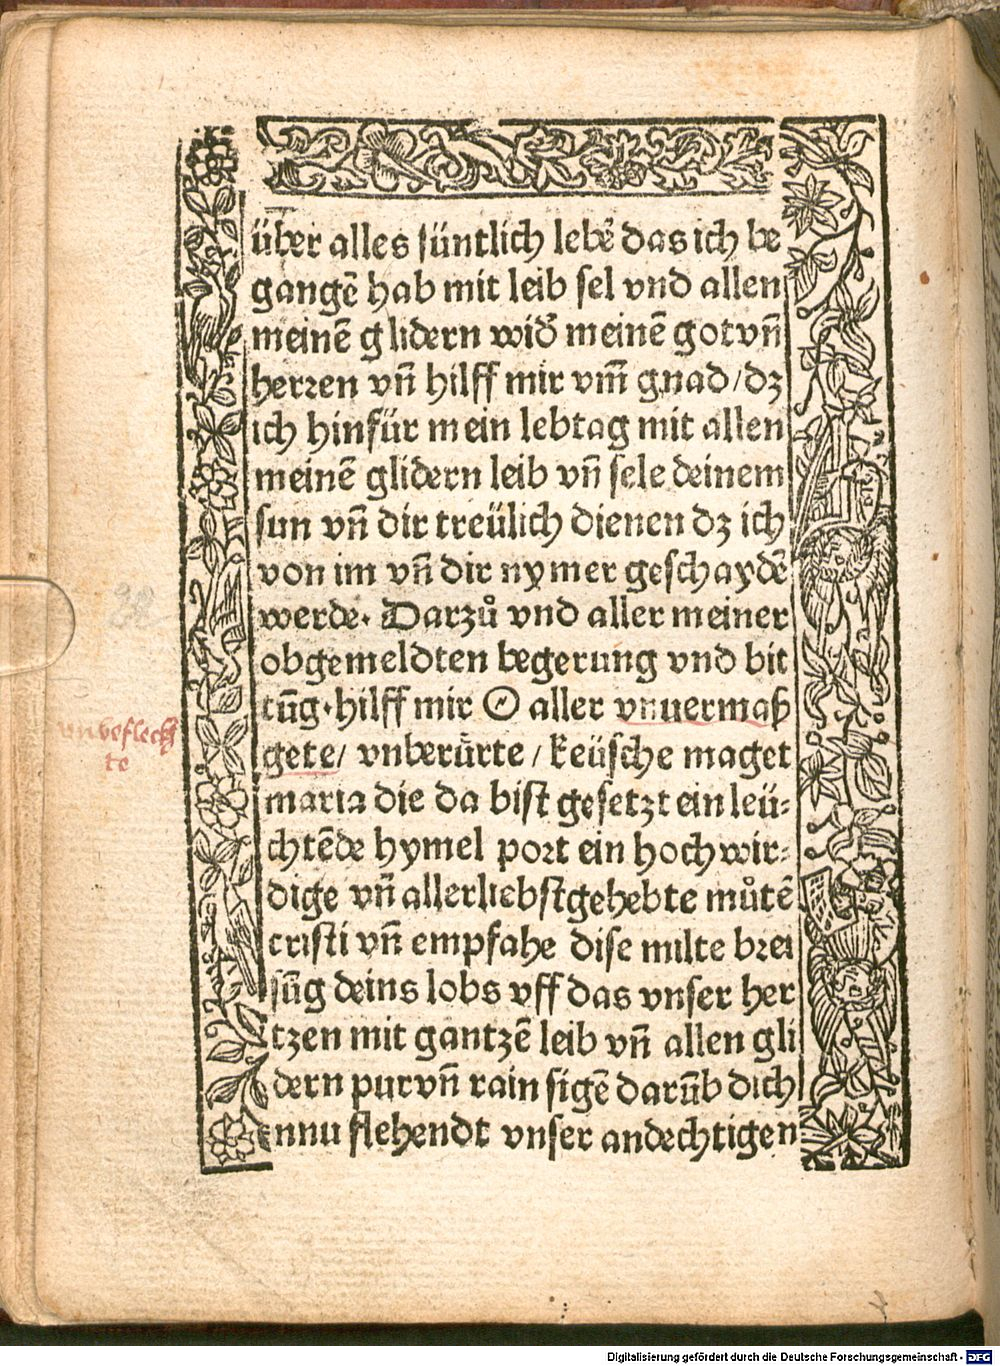 über alles süntlich lebē das ich be
gangē hab mit leib sel vnd allen
meinē glidern wid' meinē got vn̄
herꝛen vn̄ hilff mir vm̄ gnad/dz
ich hinfür mein lebtag mit allen
meinē glidern leib vn̄ sele deinem
sun vn̄ dir treülich dienen dz ich
von im vn̄ dir nymer geschaydē
werde. Darzů vnd aller meiner
obgemeldten begerung vnd bit
tūg.hilff mir O aller vnuermaß
gete/ vnberürte / keüsche maget
maria die da bist gesetzt ein leü:
chtēde hymel poꝛt ein hochwir:
dige vn̄ allerliebstgehebte můtē
cristi vn̄ empfahe dise milte brei
sūg deins lobs vff das vnser her
tzen mit gantzē leib vn̄ allen gli
dern pur vn̄ rain sigē darūb dich
nnu flehendt vnser andechtigen
vnbeflechte
te
28
Digitalisierung gefördert durch die Deutsche Forschungsgemeinschaft - DFG